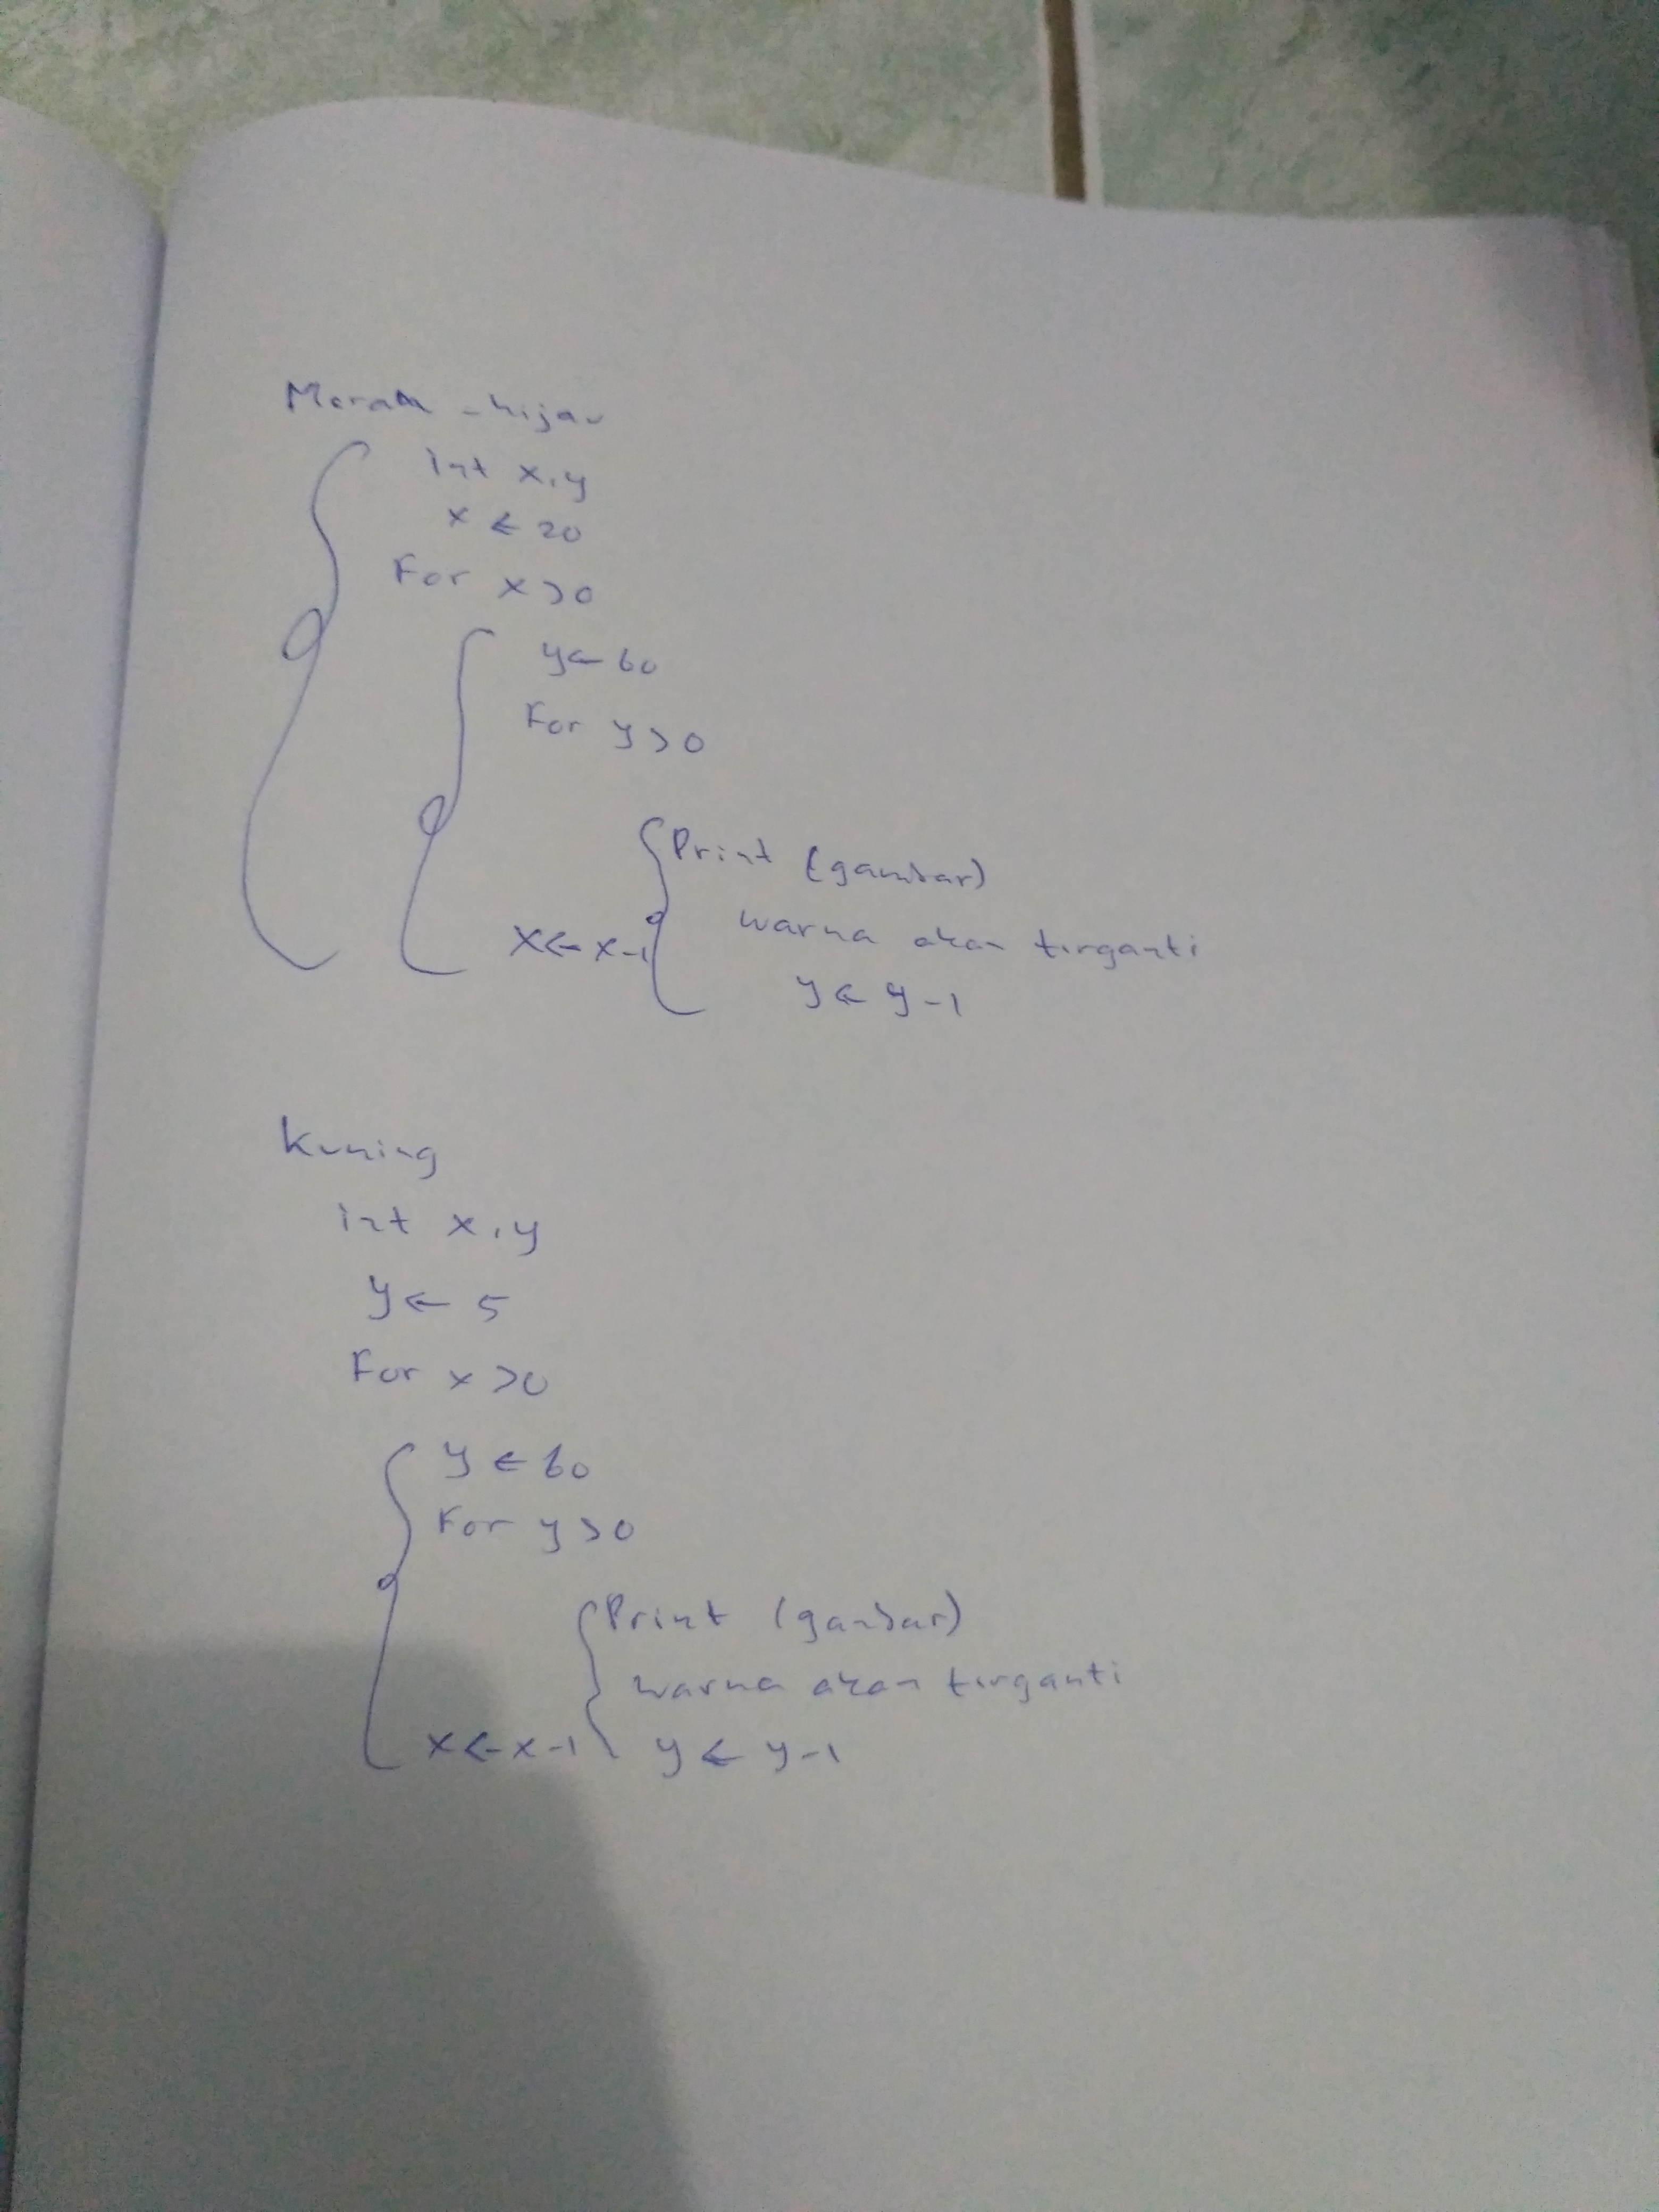 Merah - hijau
int x,y
x ← 20
For x>0
y← 60
For y>0
Print (gambar)
warna akan terganti
x← x-1
y ← y-1
Kuning
int x,y
y ← 5
For x>0
y ← 60
For y>0
Print (gambar)
warna akan terganti
x← x-1 y ← y-1